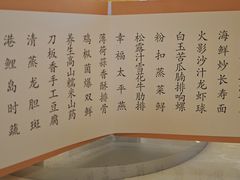 海鲜炒长寿面
火影沙汁龙虾球
白玉苦瓜脑排响螺
粉扣蒸菜鲟
松露汁雪花牛肋排
幸福太平燕
薄荷蒜香酥排骨
鸡枞菌爆双鲜
养生高山糯米山药
刀板香手工豆腐
清蒸龙胆斑
港鲤岛时蔬